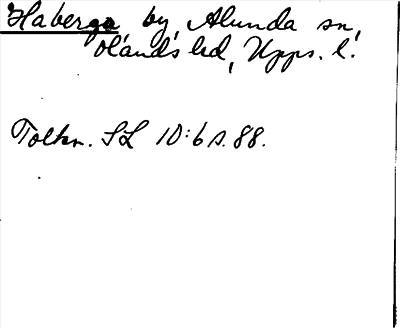 Haberga by, Alunda sn,
Olands hd, Upps. l.
Tolkn. SL 10:6 s. 88.